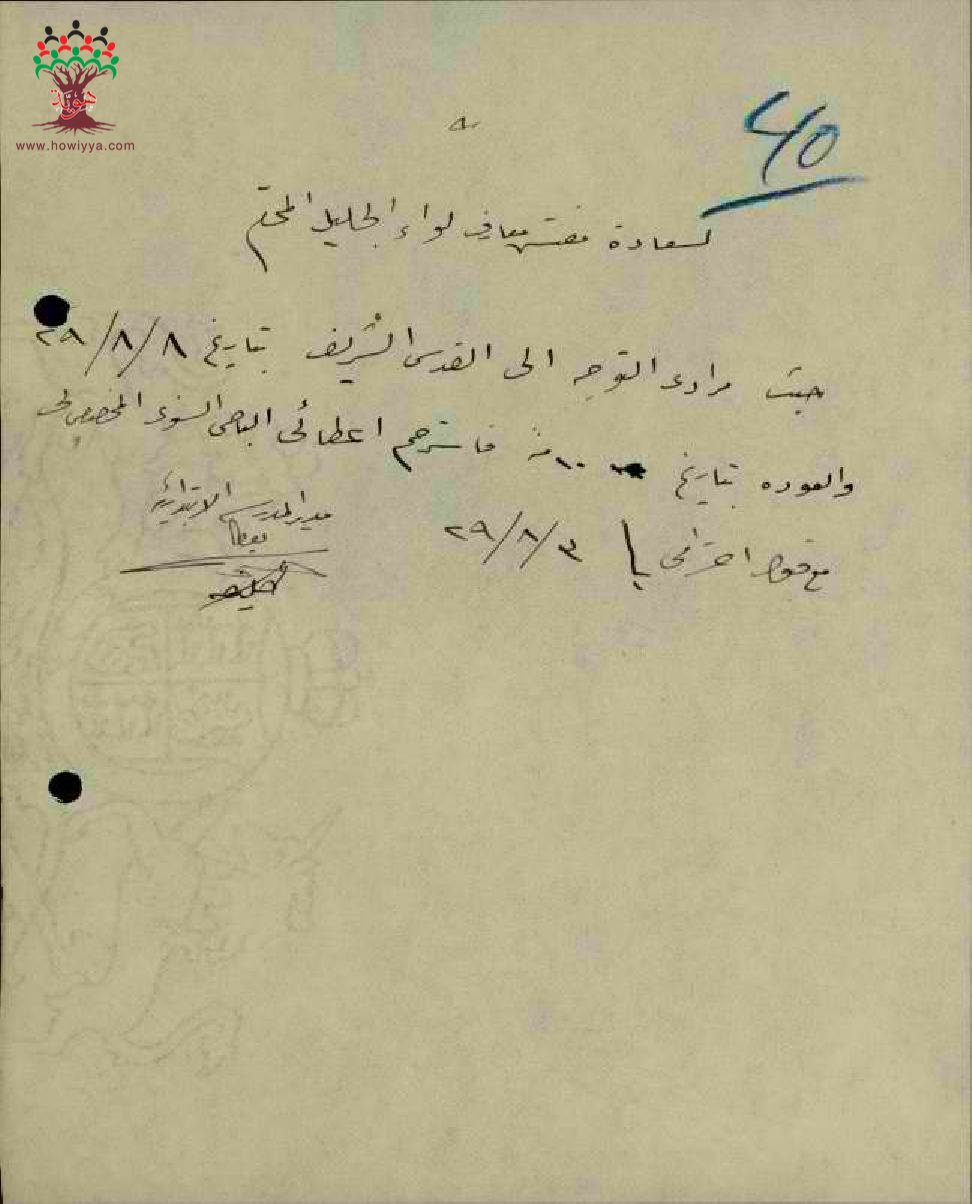 هوية
www.howiyya.com
40
لسعادة مفتش معارف لواء الجليل المحترم
حيث مرادي التوجه الى القدس الشريف بتاريخ ٢٩/٨/٨
والعوده بتاريخ ١٠ منه فاسترحم اعطائي الباص السنوي المخصص لي
مع فوق احترامي ٢٩/٨/٣
مدير المدرسة الابتدائية